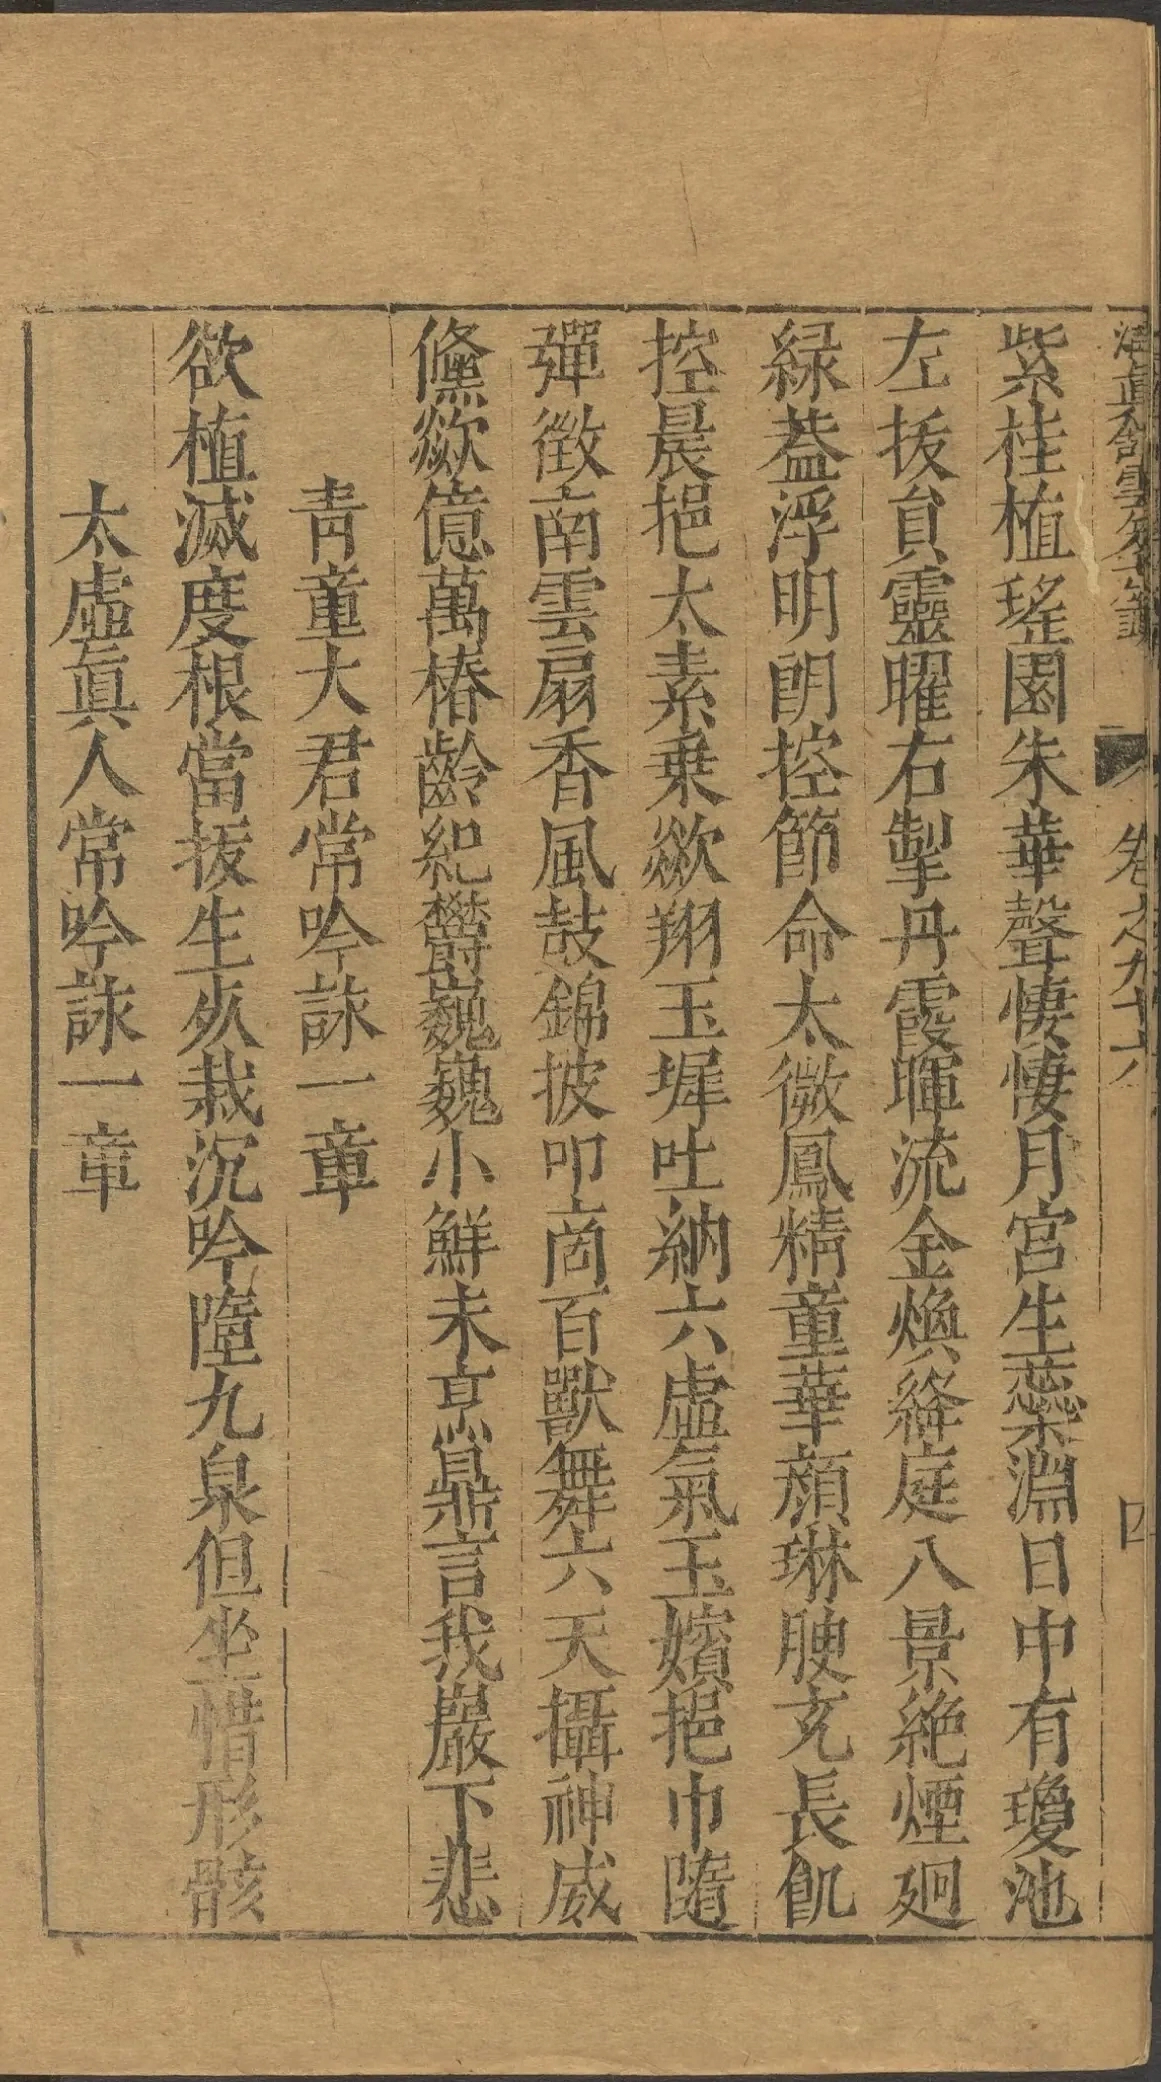 清眞館雲笈七籤 卷之九十六 四
紫桂植瑤園朱華聲悽悽月宮生蕊淵日中有瓊池
左拔員靈曜右掣丹霞暉流金煥絳庭八景絶煙廻
緑葢浮明朗控節命太微鳳精童華顔琳腴充長飢
控晨挹太素乗欻翔玉墀吐納六虚氣玉嬪挹巾隨
彈徴南雲扇香風鼓錦披叩商百獸舞六天攝神威
儵欻億萬椿齡紀欝巍巍小鮮未烹鼎言我巖下悲
青童大君常吟詠一章
欲植滅度根當拔生死栽沉吟墮九泉但坐惜形骸
太虚眞人常吟詠一章